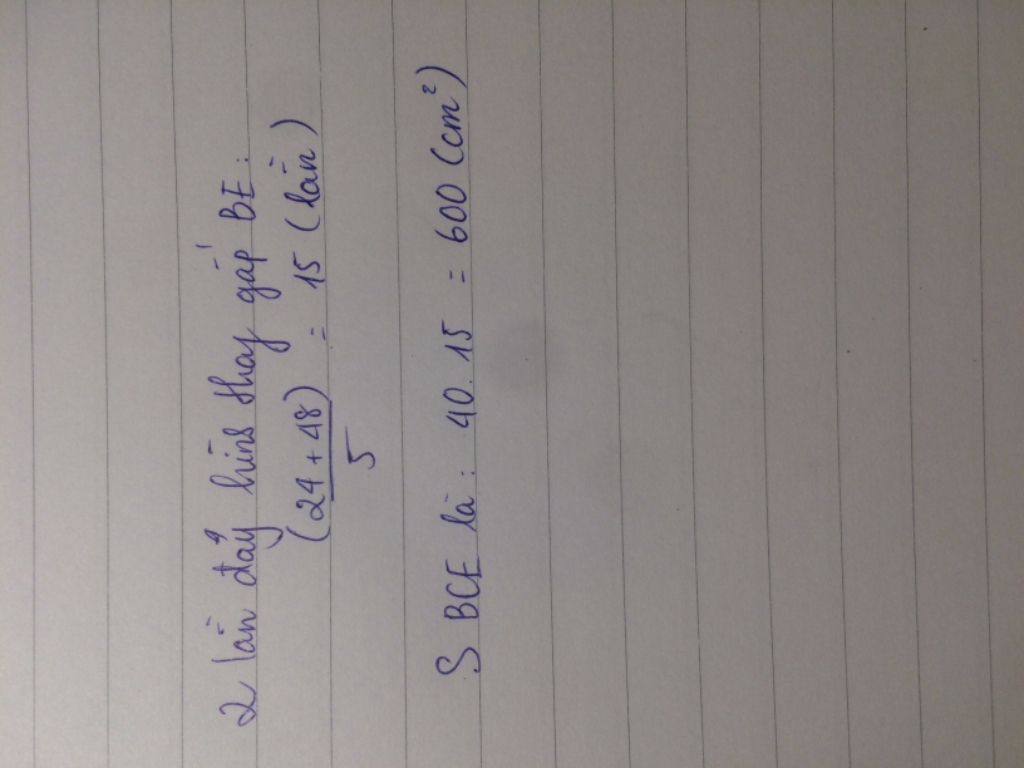 2 lần đáy hình thay gấp BE:
(24 + 48) / 5 = 15 (lần)
S BCE là: 40. 15 = 600 (cm²)